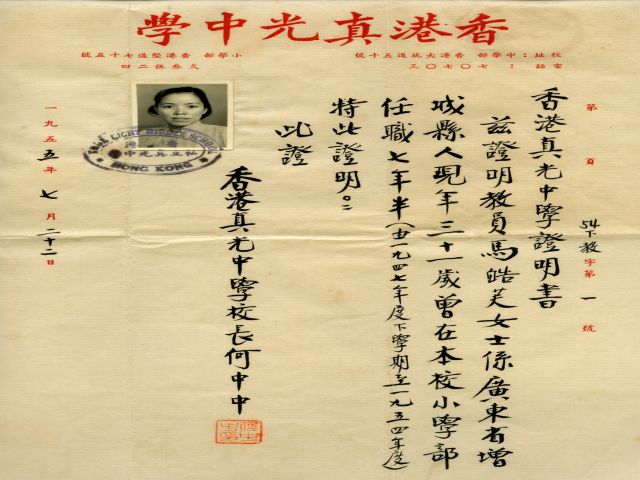 香港真光中學
校址:中學部 香港大坑道五十號 小學部 香港堅道七十五號
電話:七〇七〇三 弍叁伍二四
第 頁 54下教字第一號
香港真光中學證明書
茲證明教員馬皓芙女士係廣東省增
城縣人現年三十一歲曾在本校小學部
任職七年半(由一九四七年度下學期至一九五四年度)
特此證明。
此證
香港真光中學校長何中中
一九五五年七月二十二日
TRUE LIGHT MIDDLE SCHOOL
香港
私立真光中學
HONG KONG